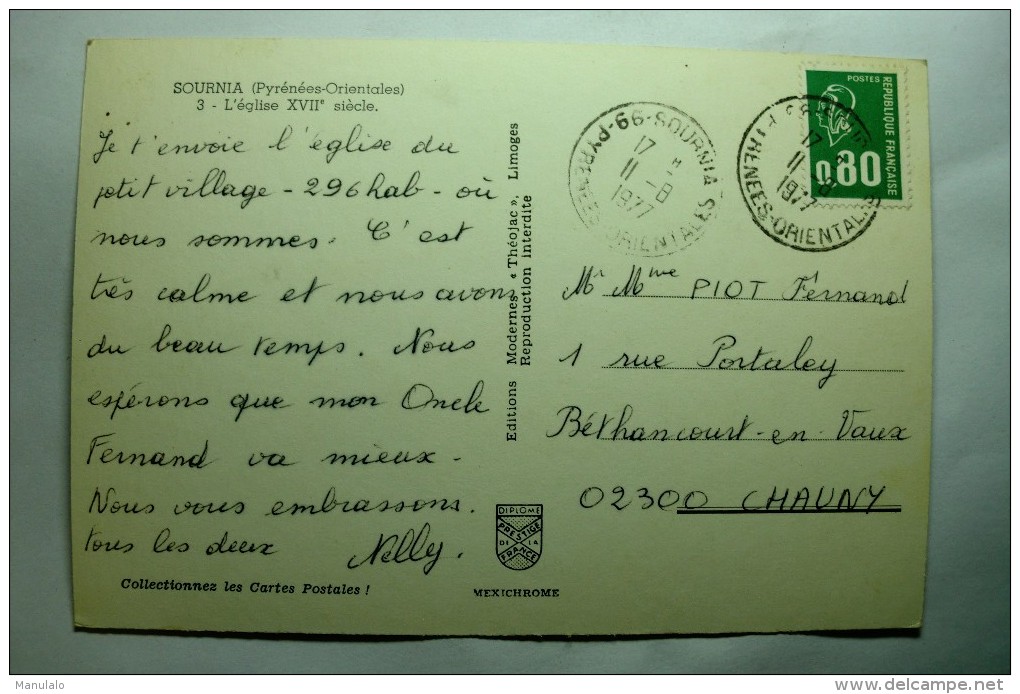 SOURNIA (Pyrénées-Orientales)
3 - L'église XVIIe siècle.
Je t'envoie l'église du
ptit village - 296 hab - où
nous sommes. C'est
très calme et nous avons
du beau temps. Nous
espérons que mon Oncle
Fernand va mieux.
Nous vous embrassons.
tous les deux Nelly.
Collectionnez les Cartes Postales !
Editions Modernes « Théojac », Limoges
Reproduction interdite
DIPLOME
PRESTIGE
DE LA
FRANCE
MEXICHROME
66-SOURNIA
17 H
11 -8
1977
PYRENEES-ORIENTALES
17
11 -8
1977
PYRENEES-ORIENTALES
POSTES
REPUBLIQUE FRANÇAISE
0.80
Mr Mme PIOT Fernand
1 rue Portaley
Béthancourt-en-Vaux
02300 CHAUNY
Manulalo
www.delcampe.net